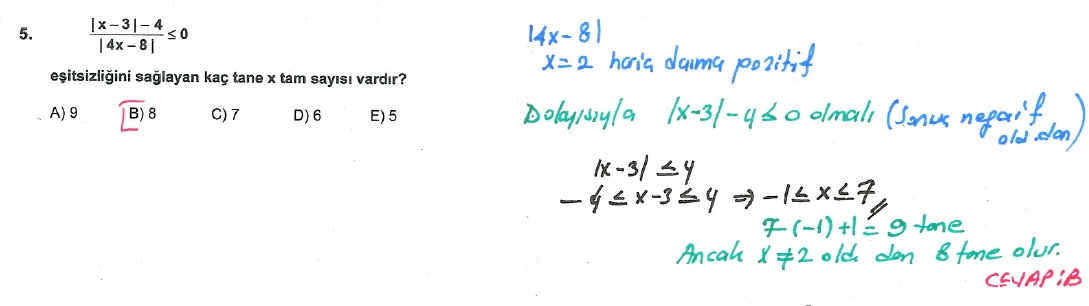 5. |x-3|-4 / |4x-8| ≤ 0
eşitsizliğini sağlayan kaç tane x tam sayısı vardır?
A) 9 B) 8 C) 7 D) 6 E) 5
|4x-8|
x=2 hariç daima pozitif
Dolayısıyla |x-3|-4≤0 olmalı (Sonuç negatif
old.dan)
|x-3| ≤4
-4≤x-3≤4 ⇒ -1≤x≤7
7-(-1)+1=9 tane
Ancak x≠2 old. dan 8 tane olur.
CEVAP:B